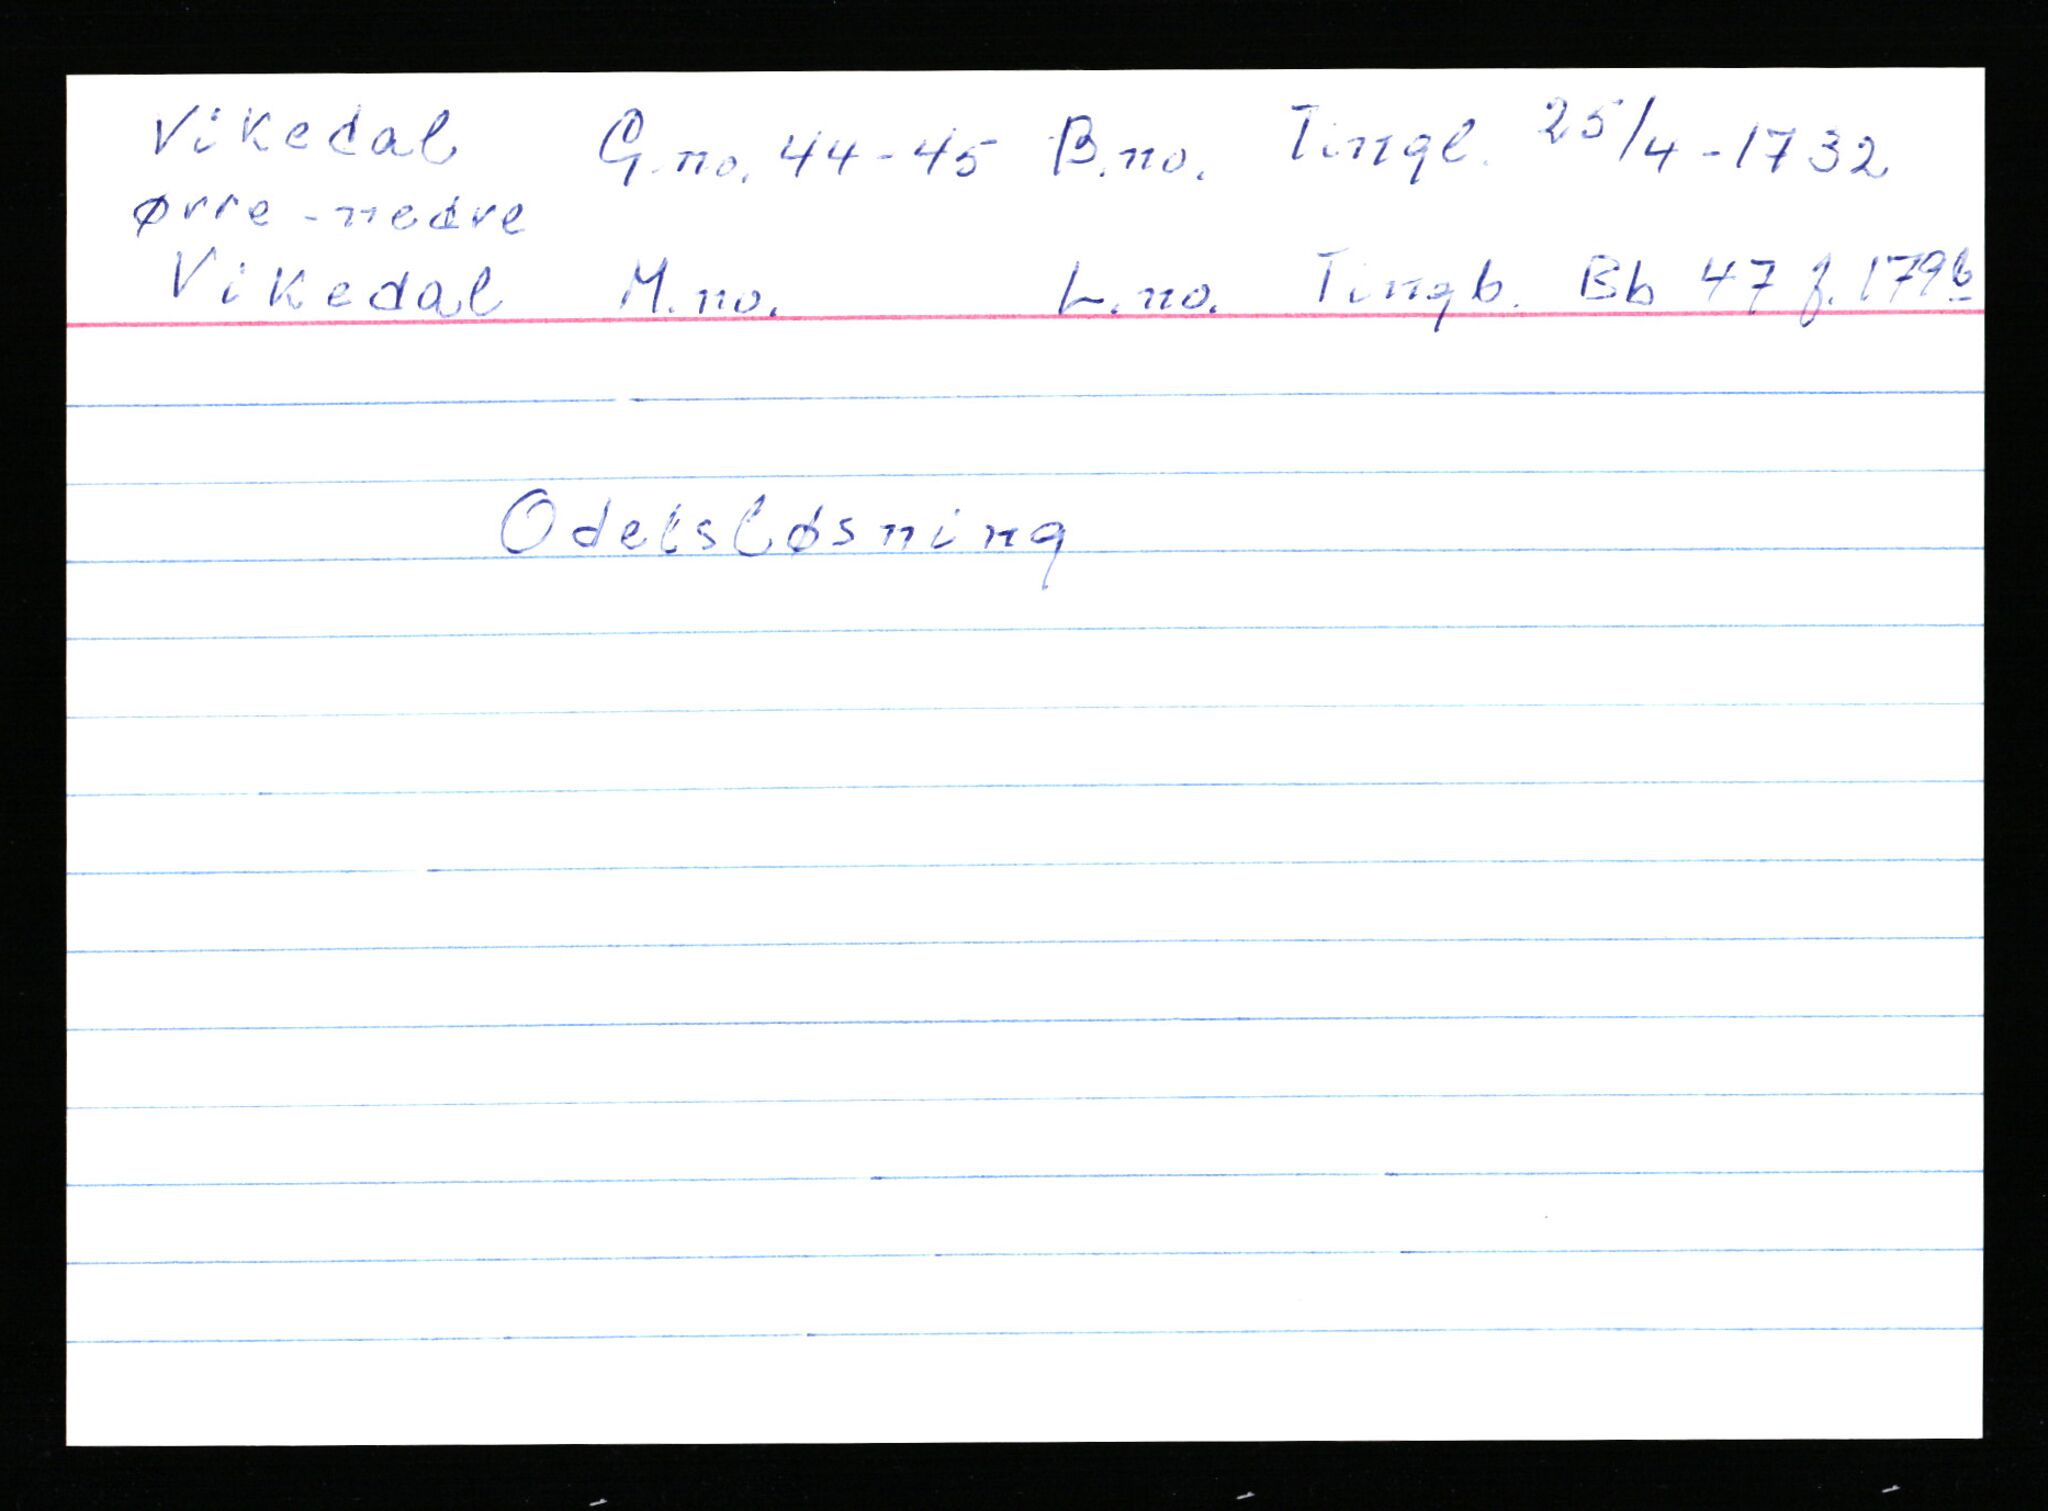 Vikedal G.no. 44-45 B.no. Tingl. 25/4-1732
Ørre-nedre
Vikedal M.no. L.no. Tingb. Bb 47 f. 179b
Odelsløsning